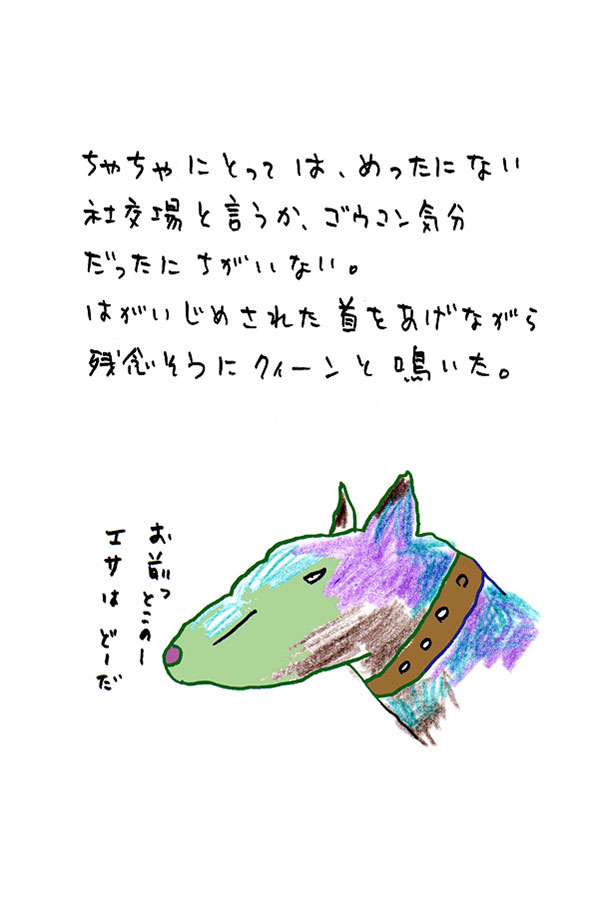 ちゃちゃにとっては、めったにない
社交場と言うか、ゴウコン気分
だったにちがいない。
はがいじめされた首をあげながら
残念そうにクィーンと鳴いた。
お前っとこのー
エサはどーだ